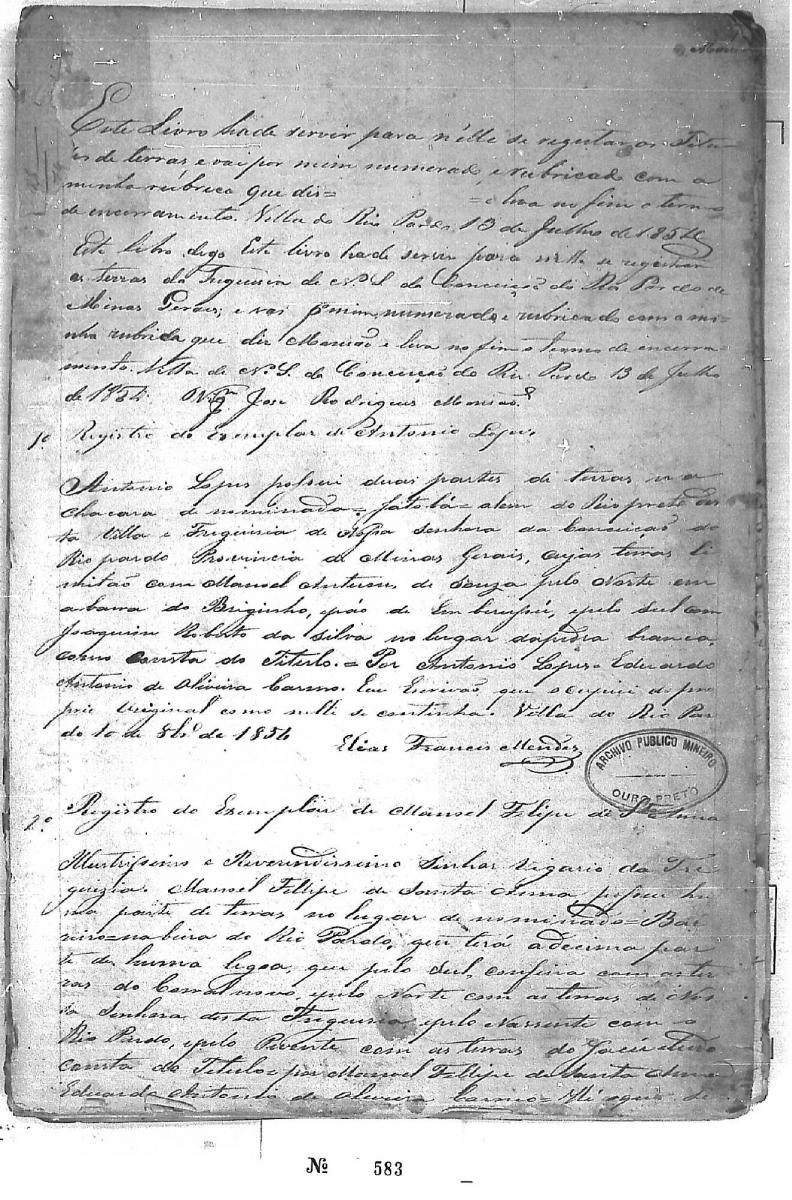 Este Livro hade servir para n'elle se registar os Titu=
los de terras e vai por mim numerado, e rubricado com a
minha rubrica que diz= = e leva no fim o termo
de encerramento. Villa do Rio Pardo 13 de Julho de 1854
Este libro digo Este livro hade servir para nelle se registrar
as terras da Freguesia de N. S. da Conceição do Rio Pardo de
Minas Geraes; e vai p mim numerado e rubricado com a mi=
nha rubrica que diz e leva no fim o termo de encerra=
mento. Villa de N. S. da Conceição do Rio Pardo 13 de Julho
de 1854. O Vigr.º José Rodrigues
1º Registro do exemplar de Antonio Lopes.
Antonio Lopes possui duas partes de terras na
chacara denominada= Jatobá= alem do Rio preto des
ta Villa e Freguisia de Nossa Senhora da Conceicão do
Rio pardo Provincia de Minas Gerais, cujas terras li
mitão com Manoel Antonio de Souza pelo Norte em
a barra do Briginho, e pelo Sul com
Joaquim Roberto da Silva no lugar da pedra branca,
como consta do Titulo.= Por Antonio Lopes= Eduardo
Antonio de Oliveira Carmo. Eu Escrivão que o copiei do pro
prio Original como nelle se continha. Villa do Rio Par
do 10 de 8br.º de 1854
Elias Francis Mendes
ARCHIVO PUBLICO MINEIRO
OURO PRETO
2º Registro do Exemplar de Manoel Felipe de Sta Anna
Illustrissimo e Reverendissimo Senhor Vigario da Fre
guezia. Manoel Fellipe de Santa Anna possue hu
ma parte de terras no lugar denominado=
na beira do Rio Pardo, que terá a decima par
te de huma legoa, que pelo Sul confina com as ter
ras do e pelo Norte com as terras de Nos
sa Senhora desta Freguisia, e pelo Nassente com o
Rio Pardo, e pelo Poente com as terras do
consta do Titulo= por Manoel Fellipe de Santa Anna
Eduardo Antonio de Oliveira Carmo=
Nº 583